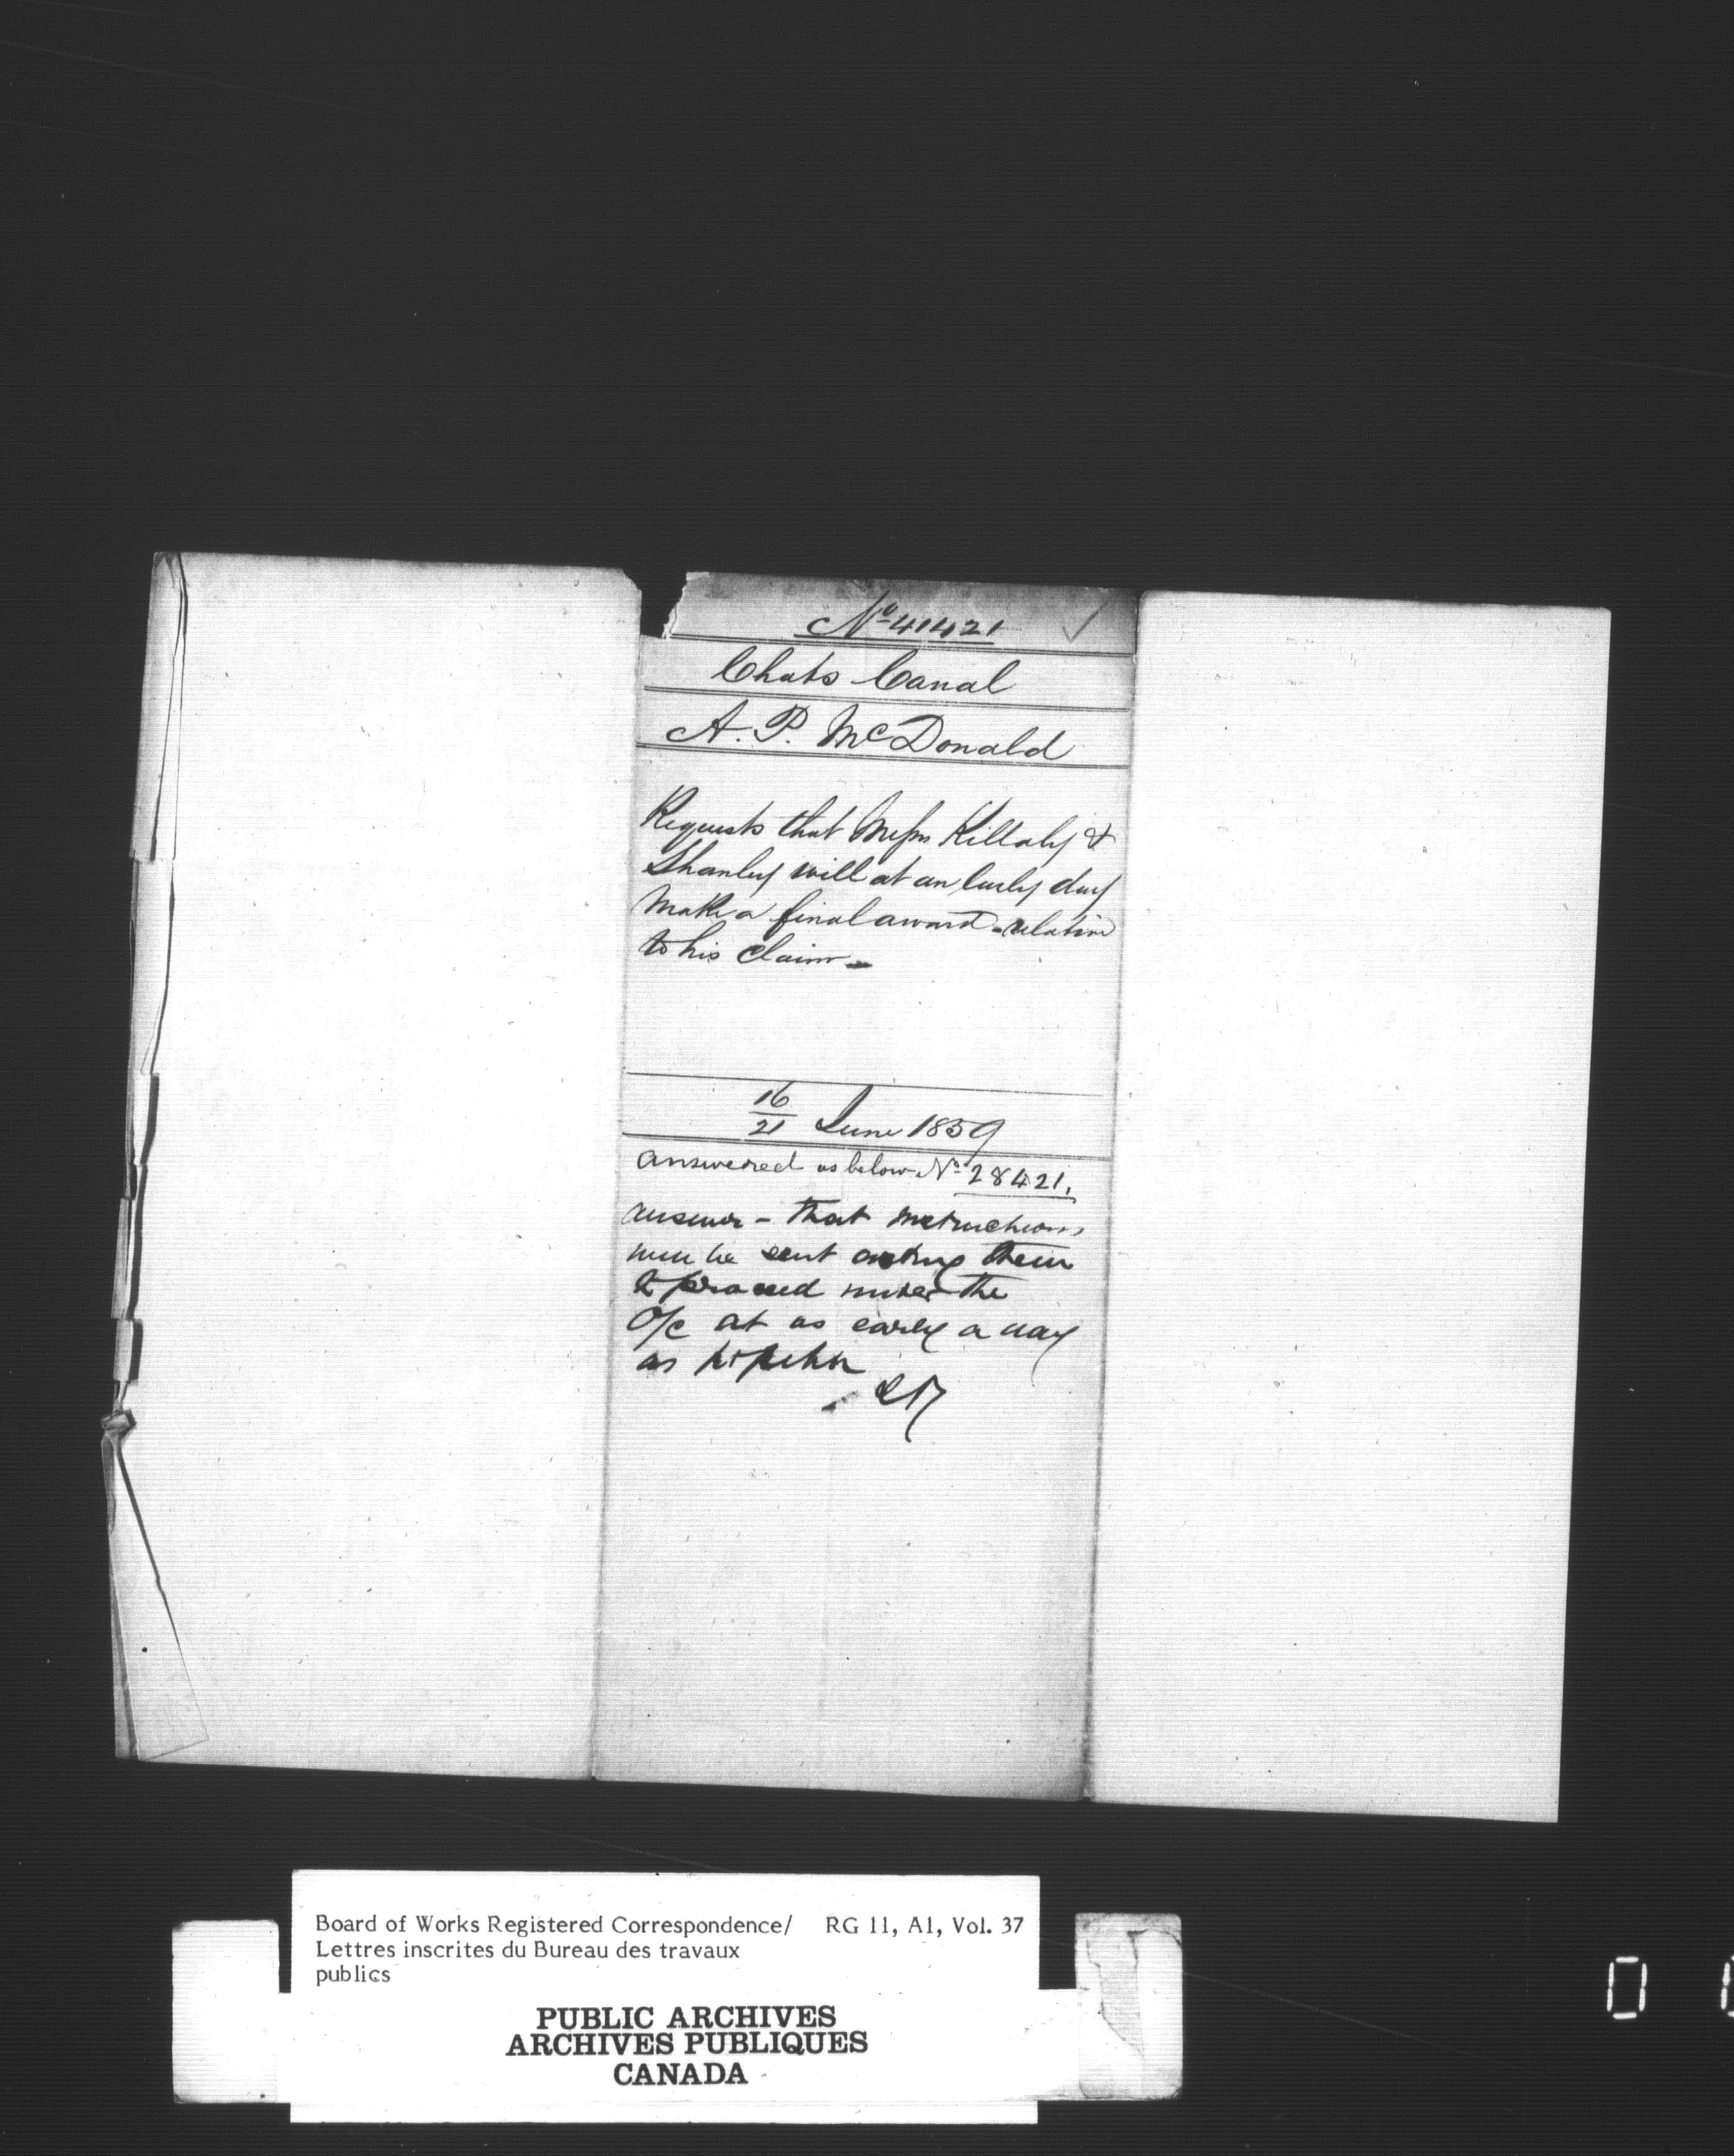 No 41421 ✓
Chats Canal
A. P. McDonald
Requests that Messrs Killaly &
Shanley will at an early day
make a final award relative
to his claim
16/21 June 1859
answered as below No 28421.
answer - that instructions
will be sent asking them
to proceed under the
O/C at as early a day
as possible
Board of Works Registered Correspondence/ RG 11, A1, Vol. 37
Lettres inscrites du Bureau des travaux
publics
PUBLIC ARCHIVES
ARCHIVES PUBLIQUES
CANADA
0